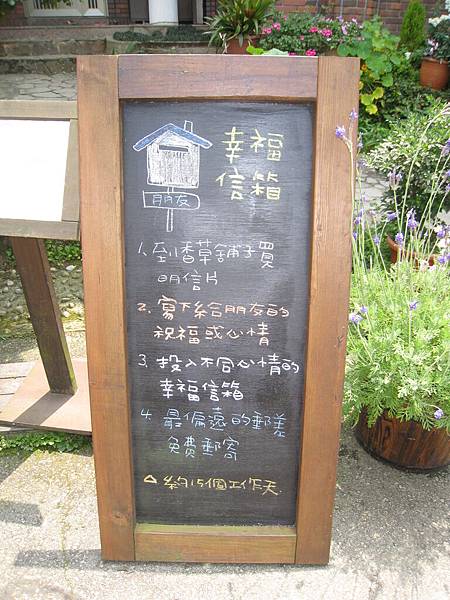 幸福
信箱
朋友
1. 到香草舖子買
明信片
2. 寫下給朋友的
祝福或心情
3. 投入不同心情的
幸福信箱
4. 最偏遠的郵差
免費郵寄
△約15個工作天.